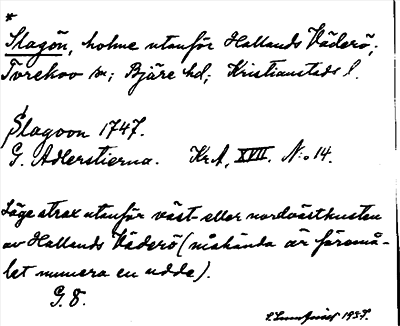 *
Slagön, holme utanför Hallands Väderö;
Torekov sn; Bjäre hd; Kristianstads l.
Slagoon 1747.
G. Adlerstierna. KrA, XVII. N:o 14.
Läge strax utanför väst- eller nordvästkusten
av Hallands Väderö (måhända är föremå-
let numera en udde).
G. F.
1937.